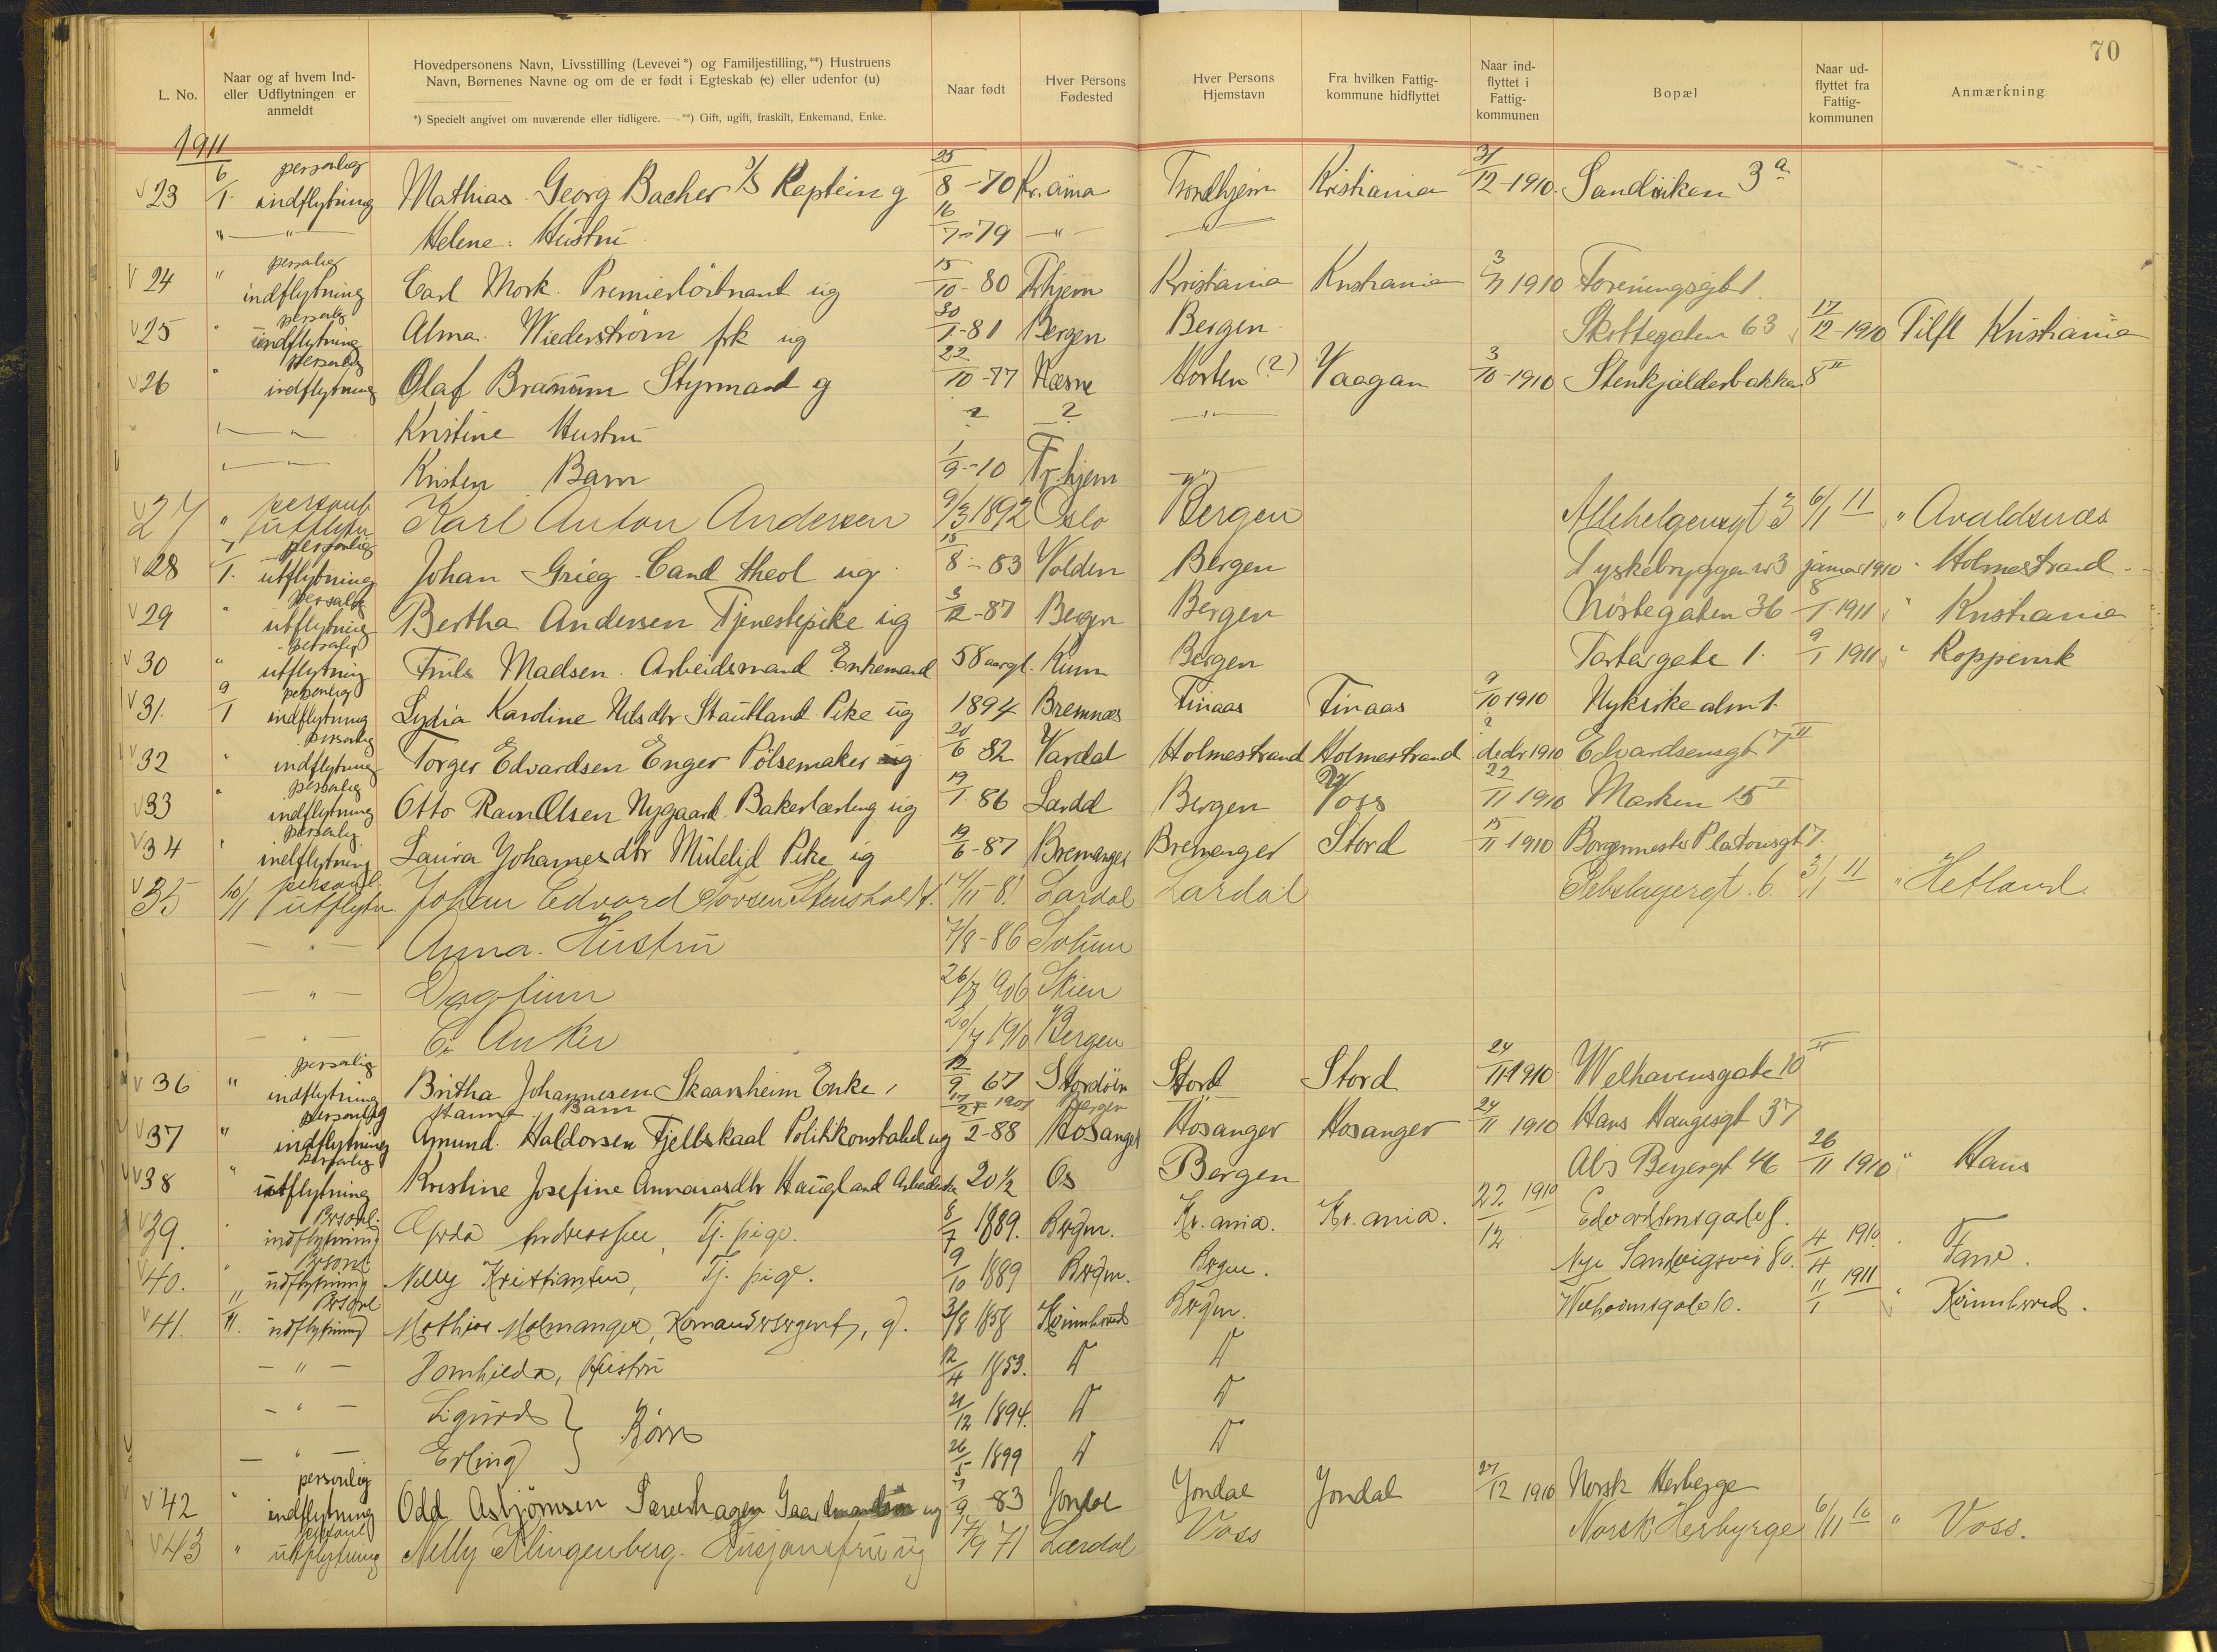 70
L. No.
Naar og af hvem Ind- eller Udflytningen er anmeldt
Hovedpersonens Navn, Livsstilling (Levevei*) og Familjestilling,**) Hustruens Navn, Børnenes Navne og om de er født i Egteskab (e) eller udenfor (u)
*) Specielt angivet om nuværende eller tidligere. — **) Gift, ugift, fraskilt, Enkemand, Enke.
Naar født
Hver Persons Fødested
Hver Persons Hjemstavn
Fra hvilken Fattig- kommune hidflyttet
Naar ind- flyttet i Fattig- kommunen
Bopæl
Naar ud- flyttet fra Fattig- kommunen
Anmærkning
1911
23 6/1. personlig indflytning Mathias Georg Bacher Kaptein g 25/8-70 Kr.ania Trondhjem Kristiania 31/12-1910. Sandviken 3a
" " Helene. Hustru 16/7-79 " "
24 " personlig indflytning Carl Mork. Premierløitnant ug 15/10-80 Trhjem Kristiania Kristiania 1910 Foreningsgt 1
25 " personlig indflytning Alma Wiederstrøm frk ug 30/1-81 Bergen Bergen Skottegaten 63 17/12-1910 Tilfl Kristiania
26 " personlig indflytning Olaf Styrmand g 22/10-77 Næsne Horten (?) Vaagan 3/10-1910 Stenkjælderbakken 8 II
" " Kristine Hustru ? ? "
" " Kristen Barn 1/9-10 Tr.hjem "
27 " personl utflytn Karl Anton Andersen 9/3 1892 Oslo Bergen Allehelgensgt 3 6/1 11 " Avaldsnæs
28 7/1. personlig utflytning Johan Grieg Cand theol ug 15/8-83 Volden Bergen Tyskebryggen januar 1910 " Holmestrand
29 " personlig utflytning Bertha Andersen Tjenestepike ug 3/12-87 Bergen Bergen Nøstegaten 36 8/1-1911 " Kristiania
30 " personlig utflytning Madsen. Arbeidsmand Enkemand 58 aargl. Kinn Bergen Tartargate 1. 9/1 1911 " Koppervik
31. 9/1 personlig indflytning Lydia Karoline Nilsdtr Stautland Pike ug 1894 Bremnæs Finaas Finaas 9/10 1910 Nykirkealm 1.
32 " personlig indflytning Torger Edvardsen Enger Pølsemaker ug 20/6 82 Vardal Holmestrand Holmestrand ? decbr 1910 Edvardsensgt 7 II
33 " personlig indflytning Otto Ravn Olsen Nygaard Bakerlærling ug 19/1-86 Lardal Bergen Voss 22/11 1910 Marken 15 I
34 " personlig indflytning Laura Johannesdtr Pike ug 19/6-87 Bremanger Bremanger Stord 15/11 1910 Borgermester Platousgt 7.
35 10/1 personl. utflytn. Johan Edvard Stensholdt. /11-81 Lardal Lardal Sebslagergt. 6. 3/1 11 " Hetland
" Anna. Hustru 7/8-86 Solum
" Dagfinn 1906 Skien
" Anker 1910 Bergen
36 " personlig indflytning Britha Johannesen Skaarsheim Enke 12/9 67 Stordøen Stord Stord 24/11-1910 Welhavensgate 10 II
Hanna Barn 1901 Bergen
37 " personlig indflytning Amund Haldorsen Fjellskaal Politikonstabel ug 2-88 Hosanger Hosanger Hosanger 24/11 1910 Hans Haugesgt 37
38 " personlig utflytning Kristine Josefine Haugland 20 1/2 Os Bergen Abs Beyersgt 46 26/11 1910 " Haus
39. " Personl. indflytning Andreassen, Tj. pige. 8/7 1889. Bergen. Kr. ania. Kr. ania. 22/12 1910 Edvardsensgate 8.
40. " Personl. udflytning Nelly Kristiansen, Tj. pige. 9/10 1889 Bergen. Bergen. Nye Sandviksvei 80. 4/4 1910. Fane.
41. 11/1. Personl udflytning Mathias Malmanger, Komandersergent, g. 3/8 1858 Kvinnherred Bergen. Welhavensgate 10. 11/1 1911 " Kvinnherred.
" Hustru 12/4 1853. D D
" Sigurd } Børn 21/12 1894. D D
" Erling } 26/5 1899 D D
42 " personlig indflytning Odd Asbjørnsen 7/9-83 Jondal Jondal Jondal 27/12 1910 Norsk Herberge
43 " personl utflytning Nelly Klingenberg. ug 17/9 71 Lærdal Voss Norsk Herbyrge 6/11 10 " Voss.